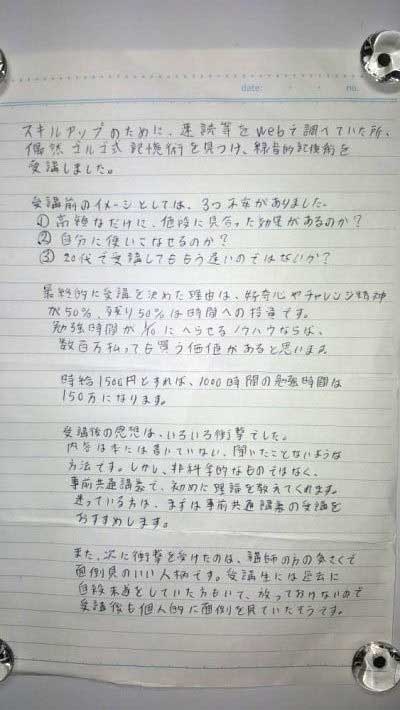 date: ・ ・ no.
スキルアップのために、速読等をwebで調べていた所、
偶然ゴルゴ式記憶術を見つけ、録音的記憶術を
受講しました。
受講前のイメージとしては、3つ不安がありました。
① 高額なだけに、値段に見合った効果があるのか?
② 自分に使いこなせるのか?
③ 20代で受講してももう遅いのではないか?
最終的に受講を決めた理由は、好奇心やチャレンジ精神
が50%、残り50%は時間への投資です。
勉強時間が1/10にへらせるノウハウならば、
数百万払っても買う価値があると思います。
時給1500円とすれば、1000時間の勉強時間は
150万になります。
受講後の感想は、いろいろ衝撃でした。
内容は本には書いていない、聞いたことないような
方法です。しかし、非科学的なものではなく、
事前共通講義で、初めに理論を教えてくれます。
迷っている方は、まずは事前共通講義の受講を
おすすめします。
また、次に衝撃を受けたのは、講師の方の気さくで
面倒見のいい人柄です。受講生には過去に
自殺未遂をしていた方もいて、放っておけないので
受講後も個人的に面倒を見ていたそうです。